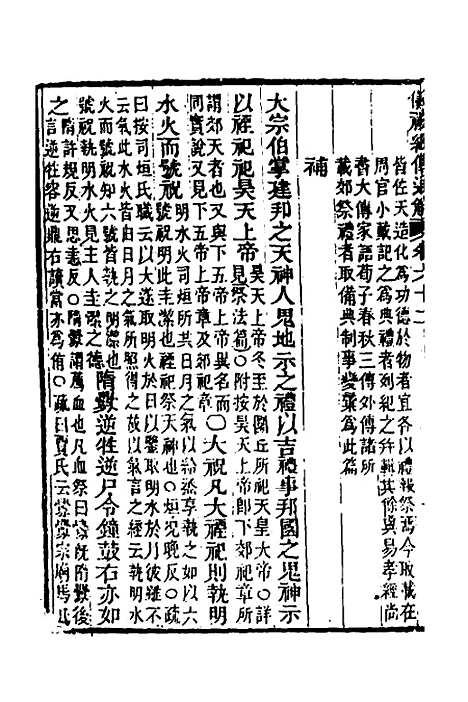 儀禮經傳通解卷六十二
皆佐天造化為功德於物者宜各以禮報祭焉今取載在
周官小戴記之為典禮者列紀之幷輯其條與易孝經尚
書大傳家語荀子春秋三傳外傳諸所
載郊祭禮者取備典制事變彙為此篇
補
大宗伯掌建邦之天神人鬼地示之禮以吉禮事邦國之鬼神示
以禋祀祀昊天上帝昊天上帝冬至於圜丘所祀天皇大帝○詳見祭法篇○附按昊天上帝即下郊祀章所
謂郊天者也又與下五帝上帝異名而同實說又見下五帝上帝章及郊祀章○大祝凡大禋祀則執明
水火而號祝明水火司烜所共日月之氣以給烝享執之如以六號祝明此圭潔也禋祀祭天神也○烜況晚反○疏
曰按司烜氏職云以夫遂取明火於日以鑒取明水於月彼雖不云氣此水火皆由日月之氣所照得之故以氣言之經云執明水
火而號祝知六號皆執之明潔也號祝執明水火見主人圭潔之德隋釁逆牲逆尸令鐘鼓右亦如
之隋許規反又思恚反○隋釁謂薦血也凡血祭曰釁既隋釁後言逆牲容逆鼎右讀當亦為侑○疏曰賈氏云釁釁宗廟馬氏